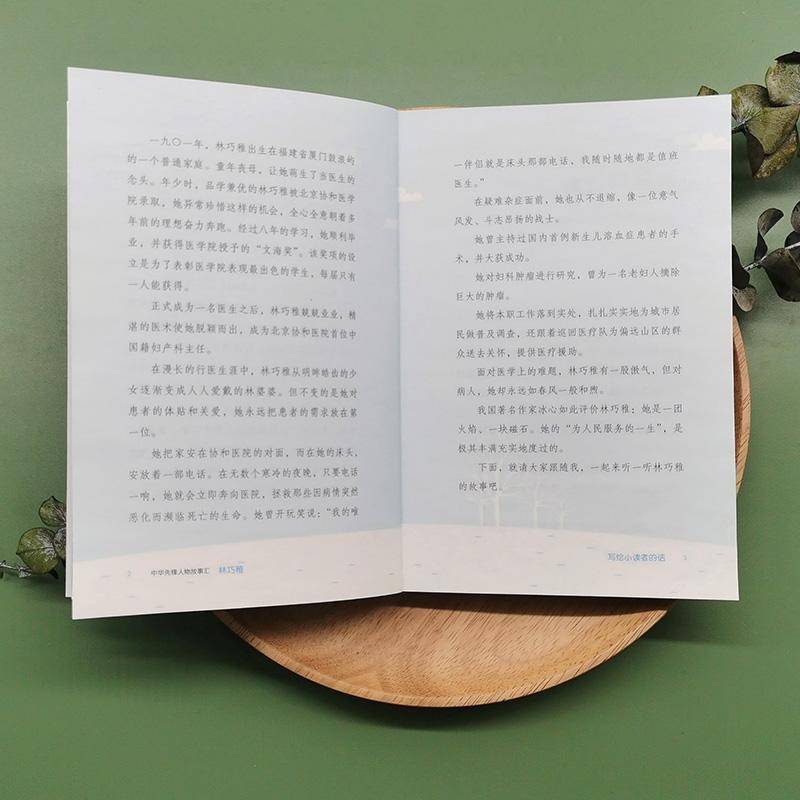 一九〇一年，林巧稚出生在福建省厦门鼓浪屿
的一个普通家庭。童年丧母，让她萌生了当医生的
念头。年少时，品学兼优的林巧稚被北京协和医学
院录取，她异常珍惜这样的机会，全心全意朝着多
年前的理想奋力奔跑。经过八年的学习，她顺利毕
业，并获得医学院授予的“文海奖”。该奖项的设
立是为了表彰医学院表现最出色的学生，每届只有
一人能获得。
正式成为一名医生之后，林巧稚兢兢业业，精
湛的医术使她脱颖而出，成为北京协和医院首位中
国籍妇产科主任。
在漫长的行医生涯中，林巧稚从明眸皓齿的少
女逐渐变成人人爱戴的林婆婆。但不变的是她对
患者的体贴和关爱，她永远把患者的需求放在第
一位。
她把家安在协和医院的对面，而在她的床头，
安放着一部电话。在无数个寒冷的夜晚，只要电话
一响，她就会立即奔向医院，拯救那些因病情突然
恶化而濒临死亡的生命。她曾开玩笑说：“我的唯
2 中华先锋人物故事汇 林巧稚
一伴侣就是床头那部电话，我随时随地都是值班
医生。”
在疑难杂症面前，她也从不退缩，像一位意气
风发、斗志昂扬的战士。
她曾主持过国内首例新生儿溶血症患者的手
术，并大获成功。
她对妇科肿瘤进行研究，曾为一名老妇人摘除
巨大的肿瘤。
她将本职工作落到实处，扎扎实实地为城市居
民做普及调查，还跟着巡回医疗队为偏远山区的群
众送去关怀，提供医疗援助。
面对医学上的难题，林巧稚有一股傲气，但对
病人，她却永远如春风一般和煦。
我国著名作家冰心如此评价林巧稚：她是一团
火焰、一块磁石。她的“为人民服务的一生”，是
极其丰满充实地度过的。
下面，就请大家跟随我，一起来听一听林巧稚
的故事吧。
写给小读者的话 3